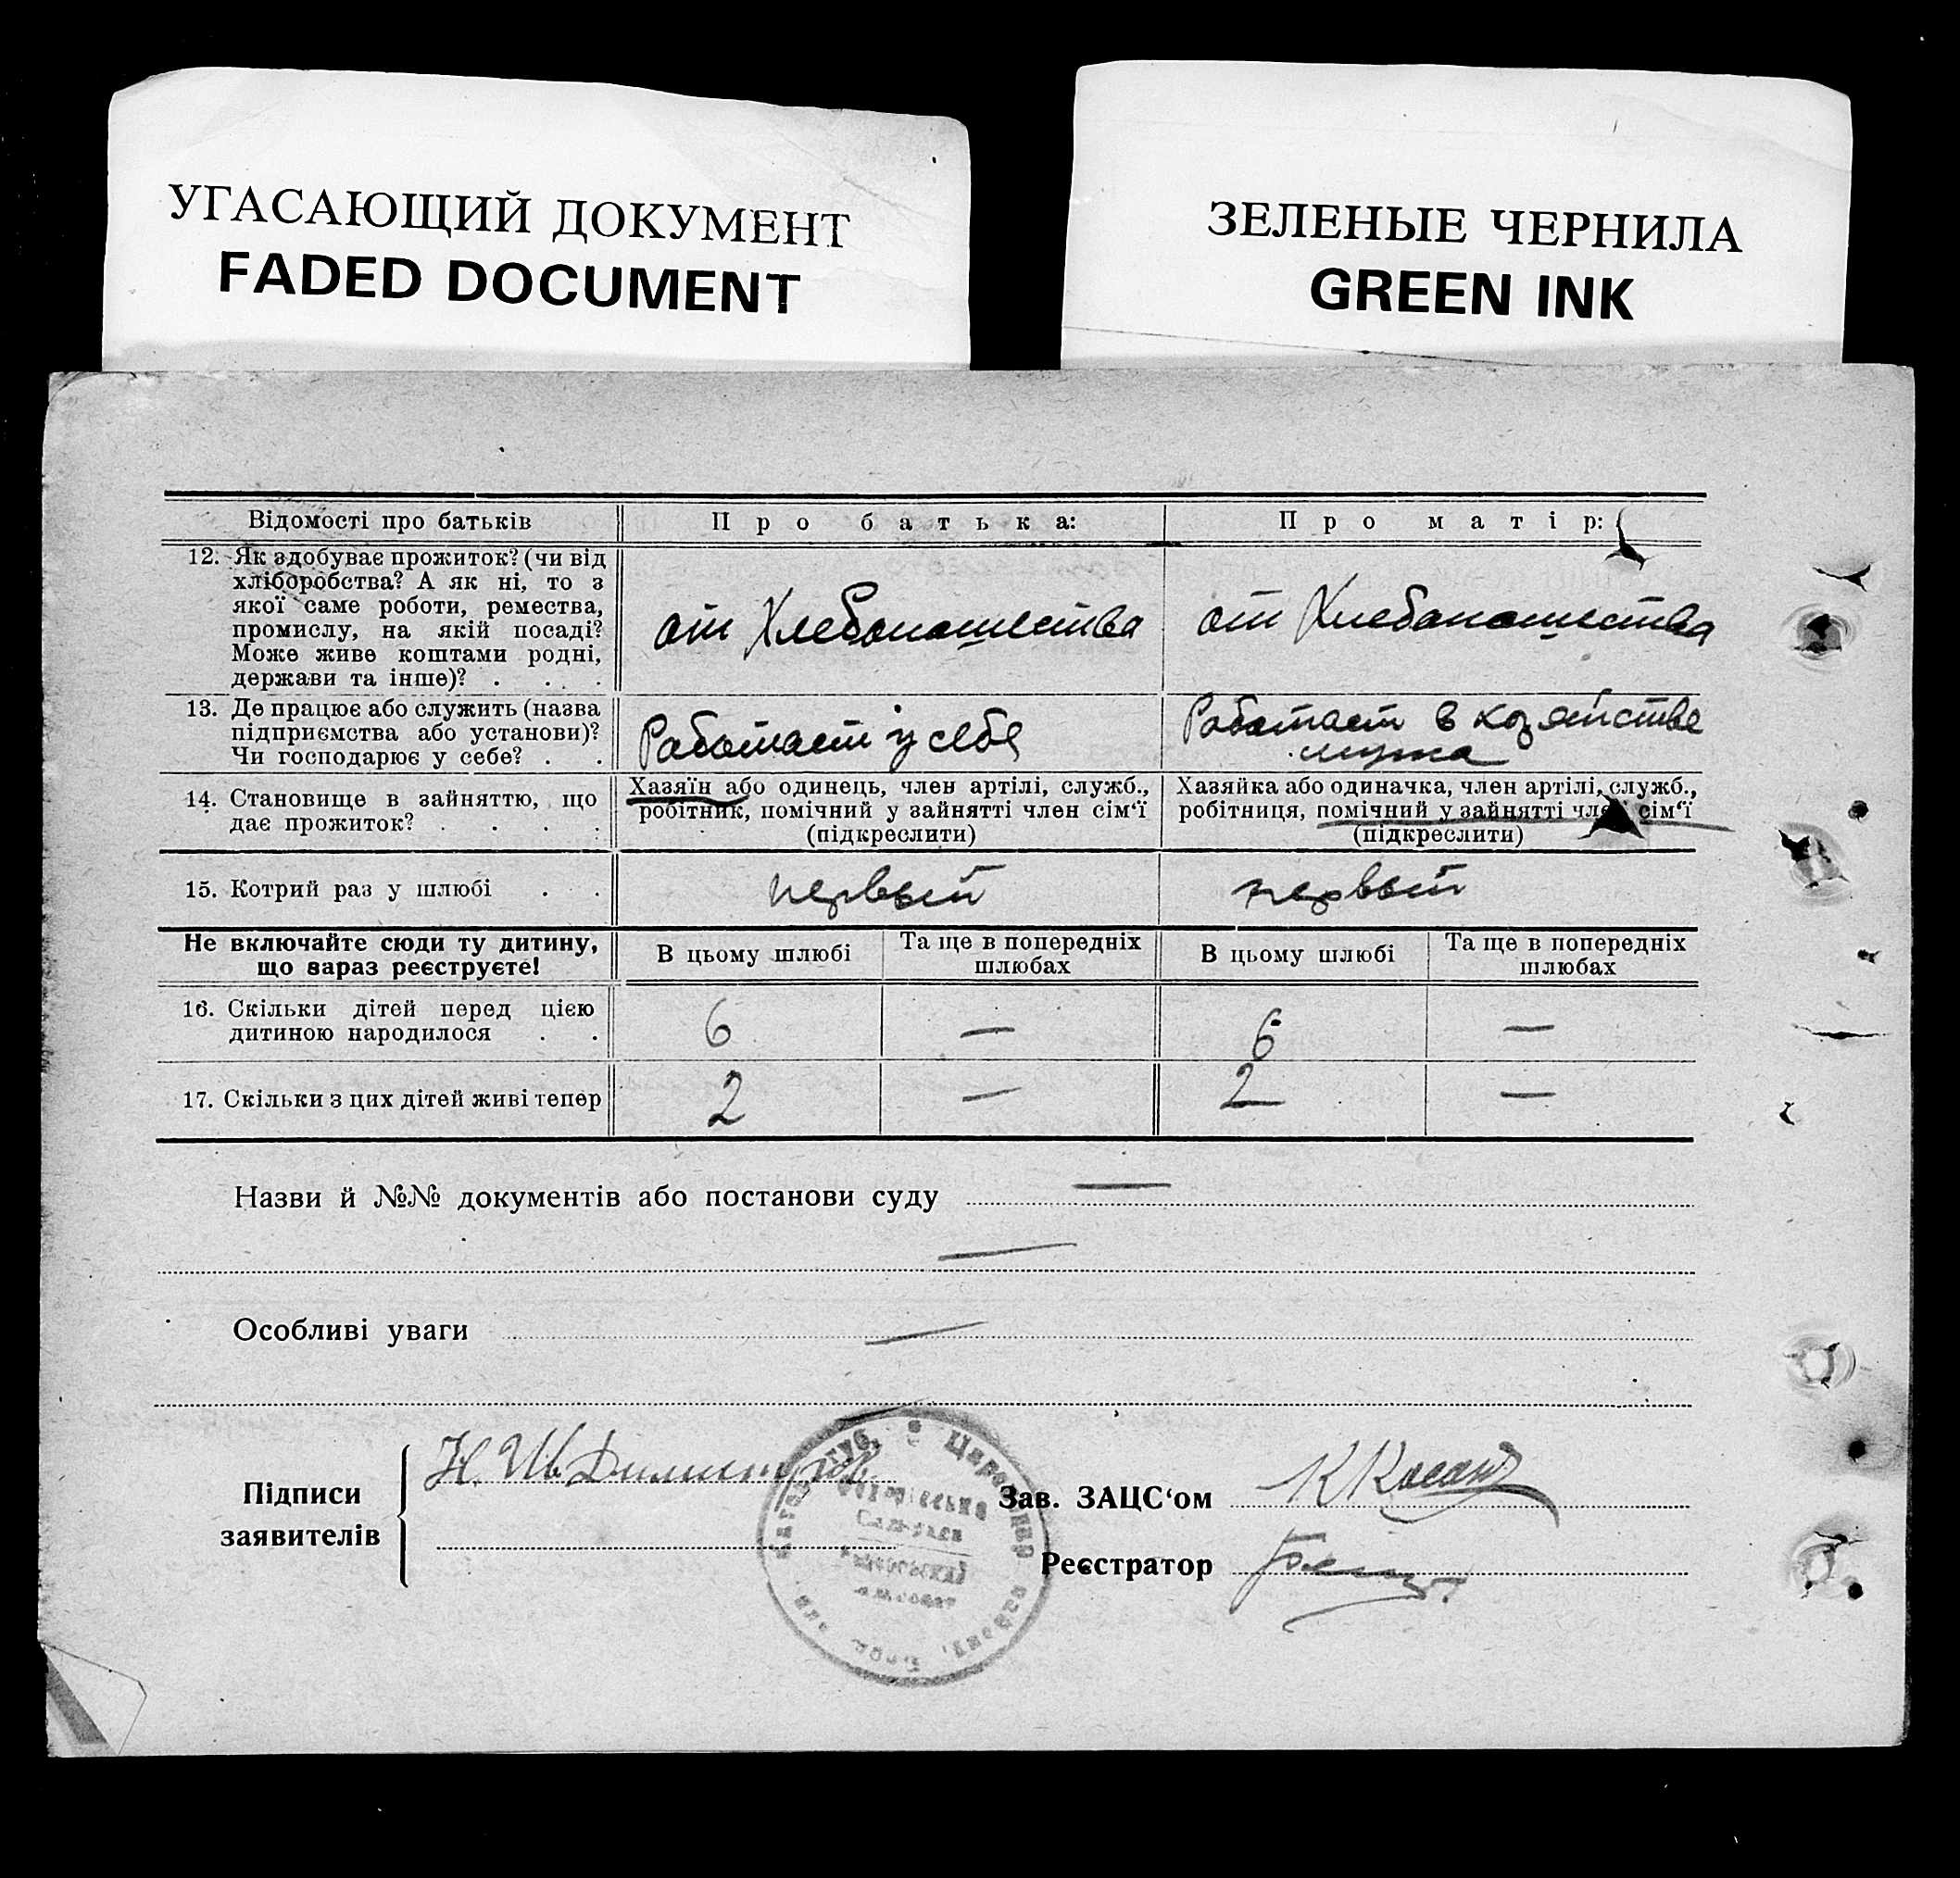 УГАСАЮЩИЙ ДОКУМЕНТ
FADED DOCUMENT
ЗЕЛЕНЫЕ ЧЕРНИЛА
GREEN INK
Відомості про батьків
Про батька:
Про матір:
12. Як здобуває прожиток? (чи від
хліборобства? А як ні, то з
якої саме роботи, ремества,
промислу, на якій посаді?
Може живе коштами родні,
держави та інше)? . . . .
от Хлебопашества
от Хлебопашества
13. Де працює або служить (назва
підприємства або установи)?
Чи господарює у себе? . .
Работает у себе
Работает в хозяйстве
мужа
14. Становище в зайняттю, що
дає прожиток? . . . .
Хазяїн або одинець, член артілі, служб.,
робітник, помічний у зайнятті член сім'ї
(підкреслити)
Хазяйка або одиначка, член артілі, служб.,
робітниця, помічний у зайнятті член сім'ї
(підкреслити)
15. Котрий раз у шлюбі . .
первый
первый
Не включайте сюди ту дитину,
що зараз реєструєте!
В цьому шлюбі
Та ще в попередніх
шлюбах
В цьому шлюбі
Та ще в попередніх
шлюбах
16. Скільки дітей перед цією
дитиною народилося . .
6
—
6
—
17. Скільки з цих дітей живі тепер
2
—
2
—
Назви й №№ документів або постанови суду —
—
Особливі уваги —
Підписи
заявителів
Зав. ЗАЦС'ом
Реєстратор